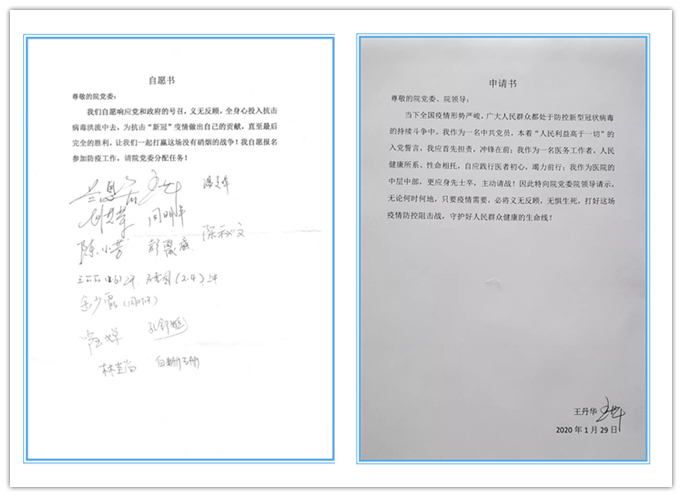 自愿书
尊敬的院党委：
我们自愿响应党和政府的号召，义无反顾，全身心投入抗击
病毒洪流中去，为抗击“新冠”疫情做出自己的贡献，直至最后
完全的胜利，让我们一起打赢这场没有硝烟的战争！我自愿报名
参加防疫工作，请院党委分配任务！
陈小芳
林
申请书
尊敬的院党委、院领导：
当下全国疫情形势严峻，广大人民群众都处于防控新型冠状病毒
的持续斗争中。我作为一名中共党员，本着“人民利益高于一切”的
入党誓言，我应首先担责，冲锋在前；我作为一名医务工作者，人民
健康所系、性命相托，自应践行医者初心，竭力前行；我作为医院的
中层中部，更应身先士卒，主动请战！因此特向院党委院领导请示，
无论何时何地，只要疫情需要，必将义无反顾，无惧生死，打好这场
疫情防控阻击战，守护好人民群众健康的生命线！
王丹华
2020 年 1 月 29 日